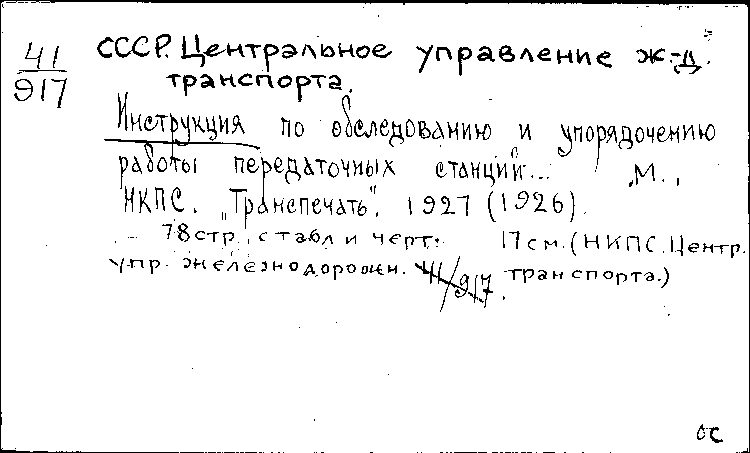 41
917
СССР. Центральное управление ж.-д.
транспорта.
Инструкция по обследованию и упорядочению
работы передаточных станций... М.,
НКПС. "Транспечать", 1927 (1926).
78 стр. с табл и черт. 17 см. (НКПС. Центр.
упр. железнодорожн. транспорта.)
41/917.
ос